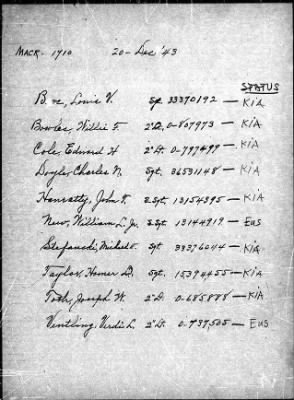 MACR - 1710 20 - Dec '43
STATUS
Louis V. Sgt 33370192 — KIA
Bowles, Willie F. 2"Lt. 0-807973 — KIA
Cole, Edward H 2"Lt. 0-797499 — KIA
Doyle, Charles N. Sgt. 36531148 — KIA
Hanratty, John F. S.Sgt. 13154395 — KIA
New, William L. Jr. S.Sgt. 13144919 — EUS
Stefanski, Sgt 33376044 — KIA
Taylor, Homer D. Sgt. 15394455 — KIA
Toth, Joseph W. 2"Lt. 0-685888 — KIA
Ventling, Verdi L. 2"Lt. 0-737505 — EUS